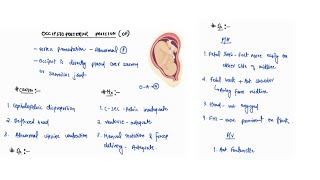 OCCIPITOPOSTERIOR POSITION (OP)
- Vertex presentation - Abnormal
- Occiput is directly placed over sacrum
or sacroiliac joint.
# Causes :-
1. Cephalopelvic disproportion
2. Deflexed head
3. Abnormal uterine contraction
# Mx :-
1. C-sec - Pelvic inadequate
2. Ventouse - adequate
3. Manual rotation & forcep
delivery - Adequate.
P/A
1. Fetal limbs - Felt more easily on
either side of midline
2. Fetal back + Ant shoulder
Away from midline
3. Head - not engaged
4. FHS - more prominent on flank
P/V
1. Ant fontanelle